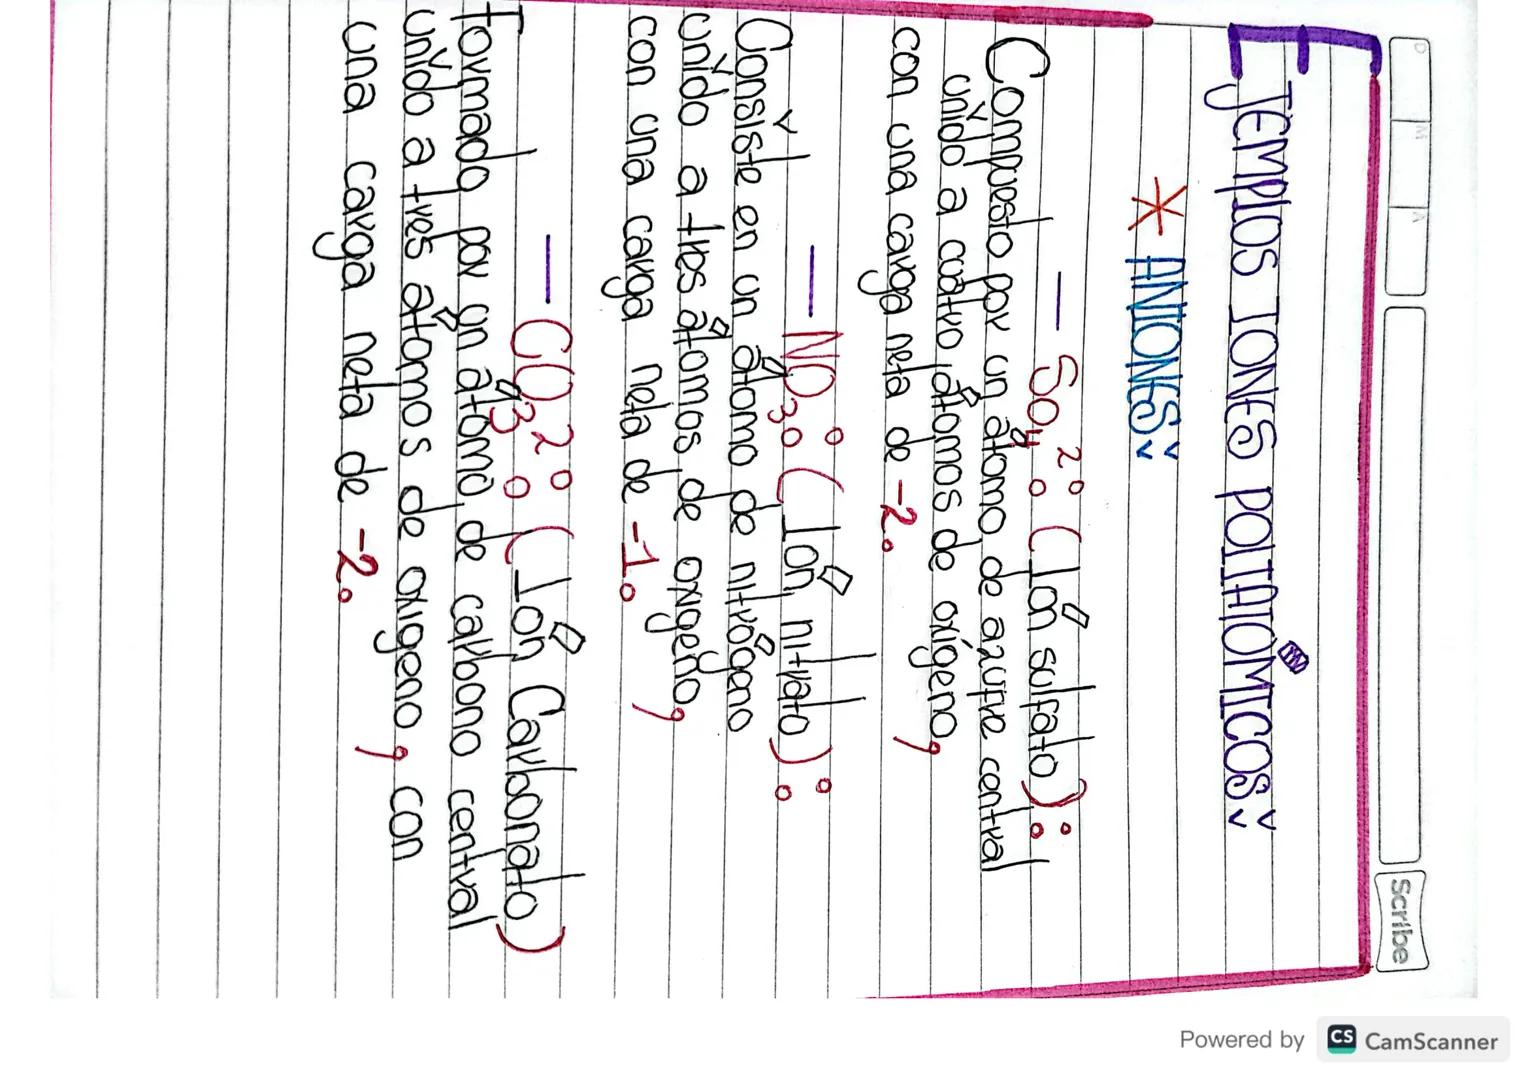 D M A
Scribe
EJEMPLOS IONES POLIATÓMICOS:
* ANIONES:
— SO₄²: (Ión sulfato):
Compuesto por un átomo de azufre central
unido a cuatro átomos de oxígeno,
con una carga neta de -2.
— NO₃: (Ión nitrato):
Consiste en un átomo de nitrógeno
unido a tres átomos de oxigeno,
con una carga neta de -1.
— CO₃²: (Ión Carbonato)
Formado por un átomo de carbono central
unido a tres átomos de oxigeno, con
una carga neta de -2.
Powered by CS CamScanner